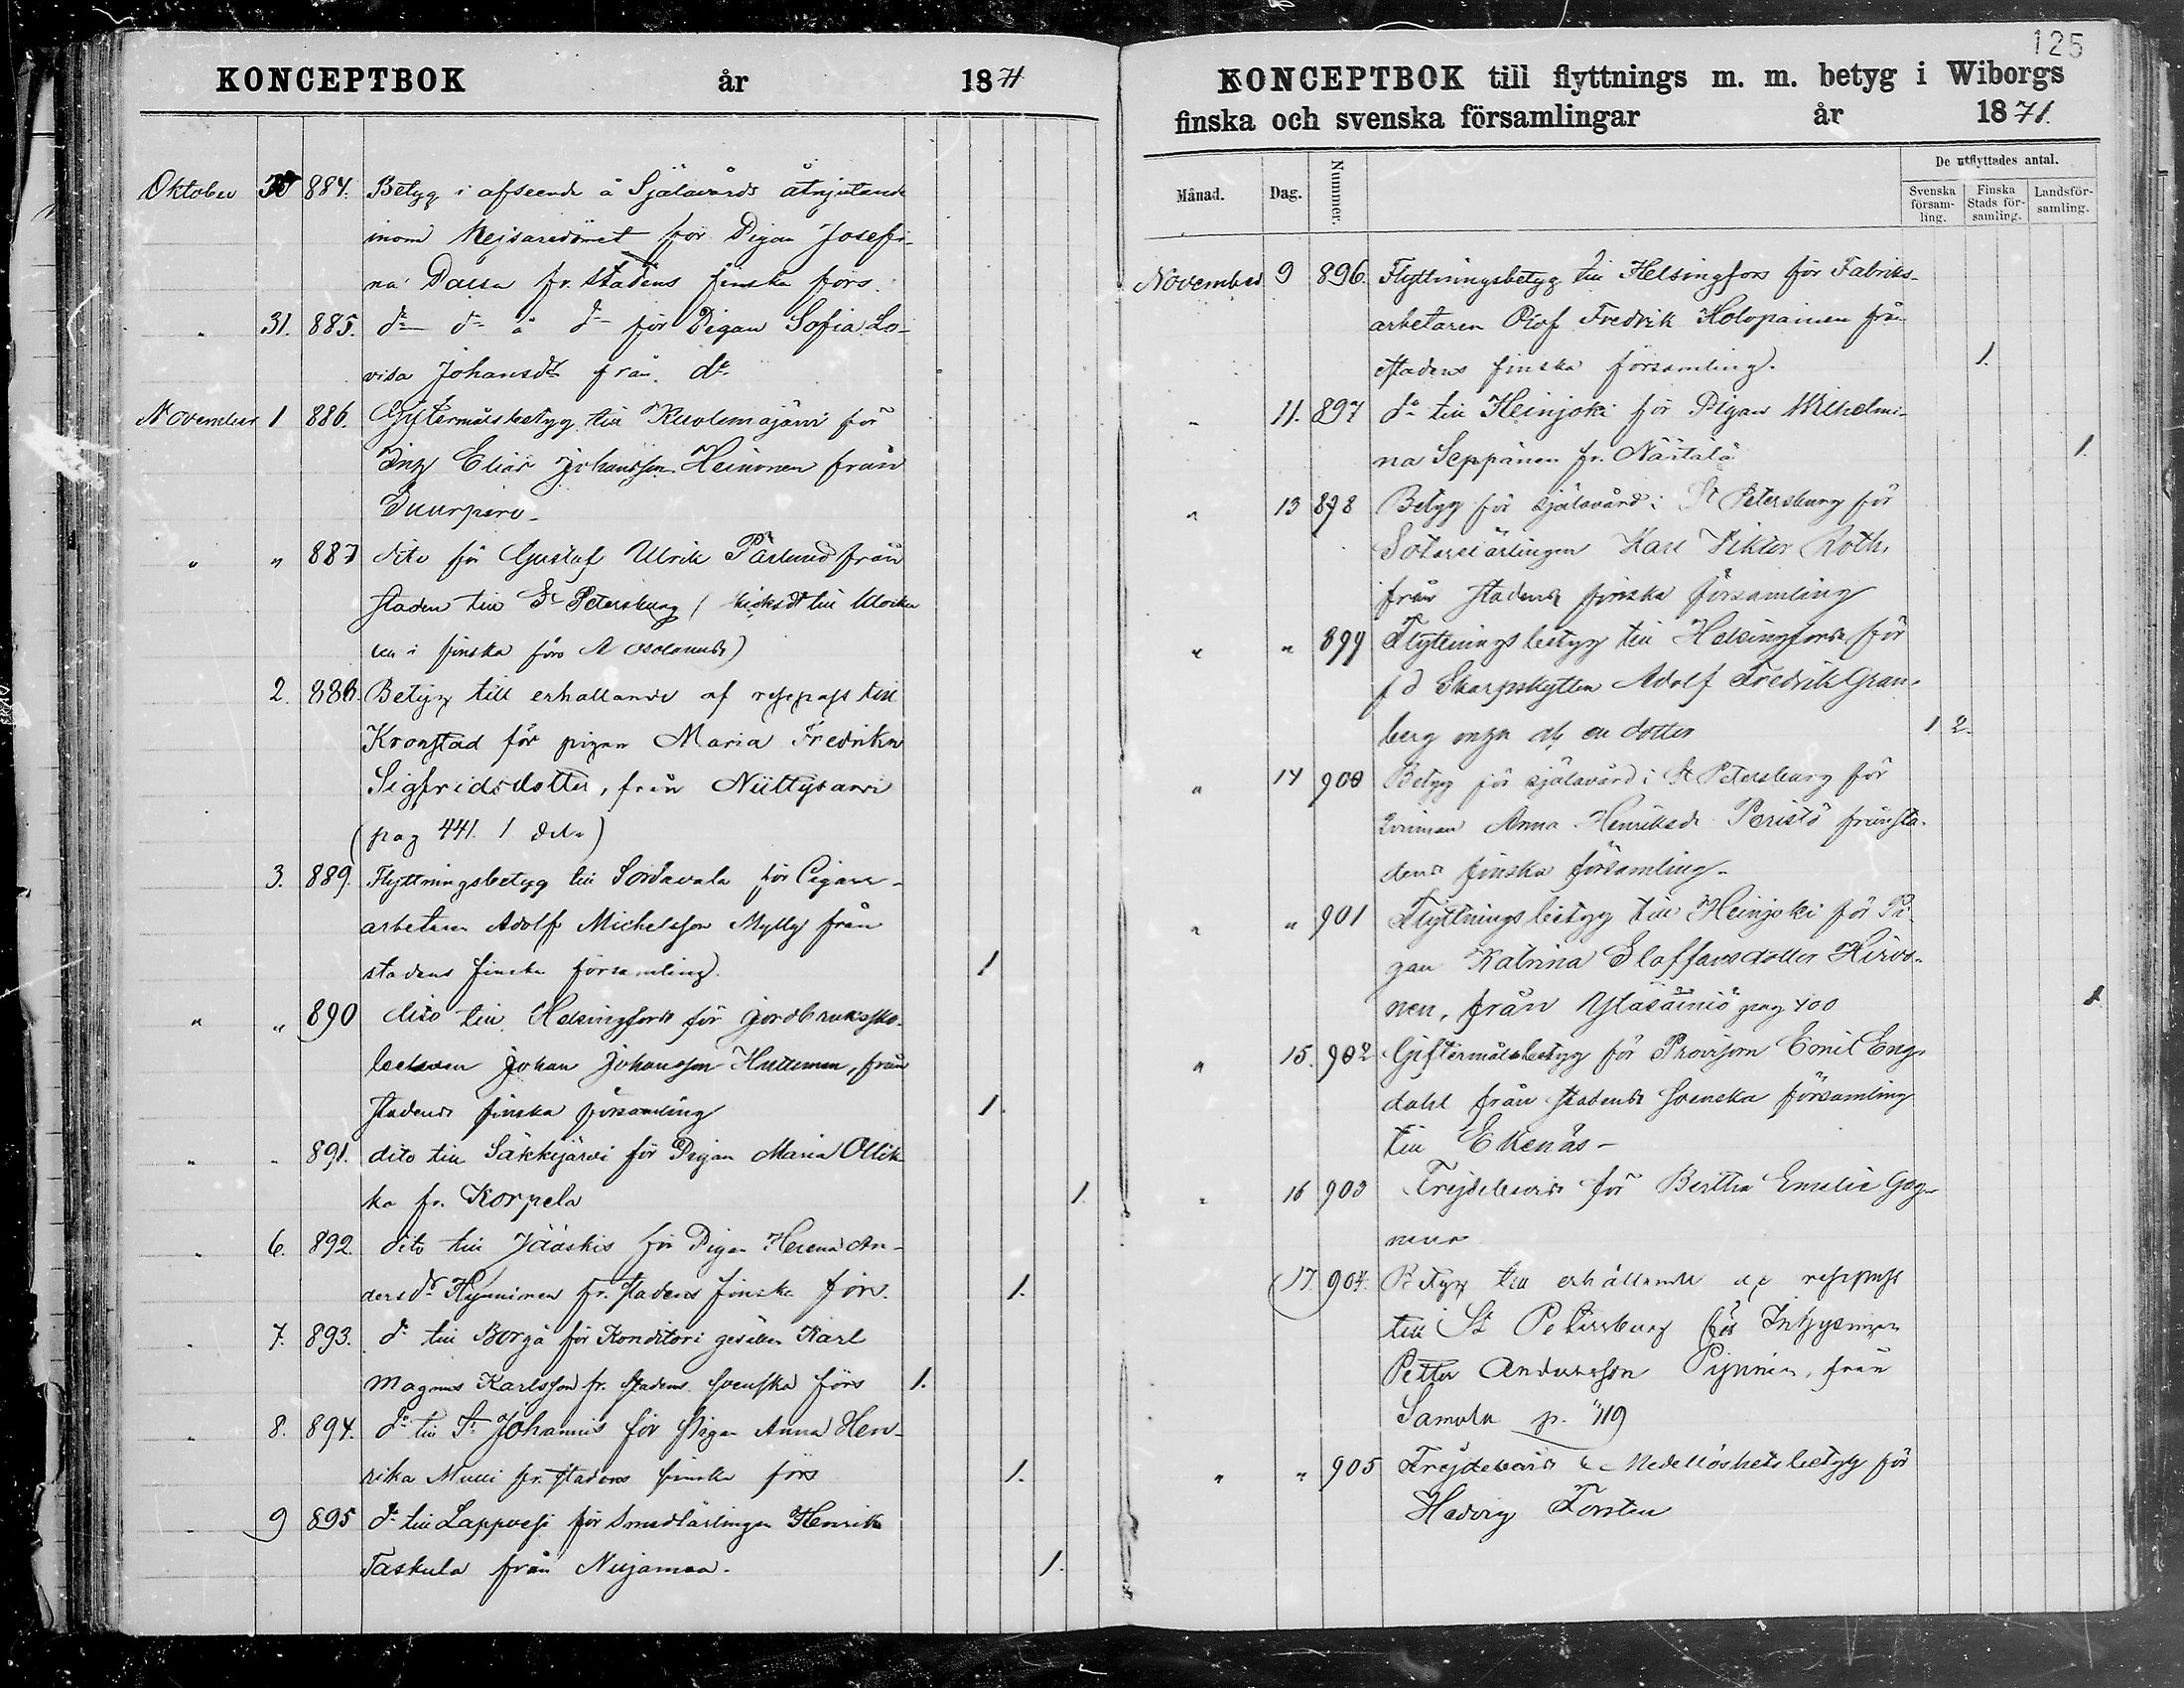 KONCEPTBOK år 1871
Oktober 30 884. Betyg i afseende å Själavårds åtnjutande
inom Kejsaredömet för Pigan Josefi-
na fr. stadens finska förs.
" 31. 885. do do å do för Pigan Sofia Lo-
visa Johansdr från do
November 1 886. Giftermålsbetyg till Kuolemajärvi för
Elias Johansson Heinonen från
Suurpero
" " 887 dito för Gustaf Ulrik från
staden till St Petersburg (
i finska förs
2. 888. Betyg till erhållande af respass till
Kronstad för pigan Maria Fredrika
Sigfridsdotter, från Niittysaari
(pag 441. 1
3. 889. Flyttningsbetyg till Sordavala för Cigarr-
arbetaren Adolf Michelsson Mylly från
stadens finska församling. 1
" " 890 dito till Helsingfors för
Johan Johansson Huttunen, från
stadens finska församling 1.
" " 891. dito till Säkkijärvi för Pigan Maria Ollik-
ka fr. Korpela 1.
" 6. 892. dito till Jääskis för Pigan Helena An-
ders dr Hynninen fr. stadens finska förs. 1.
" 7. 893. do till Borgå för Konditori gesällen Karl
Magnus Karlsson fr. stadens svenska förs 1.
" 8. 894. do till St Johannis för Pigan Anna Hen-
rika fr. stadens finska förs 1.
" 9 895 do till Lappvesi för Smedlärlingen Henrik
Taskula från Nujamaa. 1.
125
KONCEPTBOK till flyttnings m. m. betyg i Wiborgs
finska och svenska församlingar år 1871.
Månad. Dag. Nummer. De utflyttades antal.
Svenska församling. Finska Stads församling. Landsförsamling.
November 9 896. Flyttningsbetyg till Helsingfors för Fabriks-
arbetaren Olof Fredrik Holopainen från
stadens finska församling. 1.
" 11. 897 do till Heinjoki för Pigan Wilhelmi-
na Seppänen fr. Näätälä 1.
" 13 898 Betyg för själavård i St Petersburg för
Sotarelärlingen Karl Viktor Roth,
från stadens finska församling
" " 899 Flyttningsbetyg till Helsingfors för
f d Skarpskytten Adolf Fredrik Gran-
berg en dotter 1 2
" 14 900 Betyg för själavård i St Petersburg för
Anna Henriksdr Peristö från sta-
dens finska församling
" " 901 Flyttningsbetyg till Heinjoki för Pi-
gan Katrina Staffansdotter Hirvo-
nen, från Yläsäiniö pag 400 1
" 15. 902 Giftermålsbetyg för Provisorn Emil Eng-
dahl från stadens svenska församling
till Ekenäs
" 16 903 Frejdebevis för Bertha Emelie
17. 904. Betyg till erhållande af respass
till St Petersburg för Inhysingen
Petter Andersson från
Samola p. 119
" " 905 Frejdebevis & Medellöshetsbetyg för
Hedvig Forstén